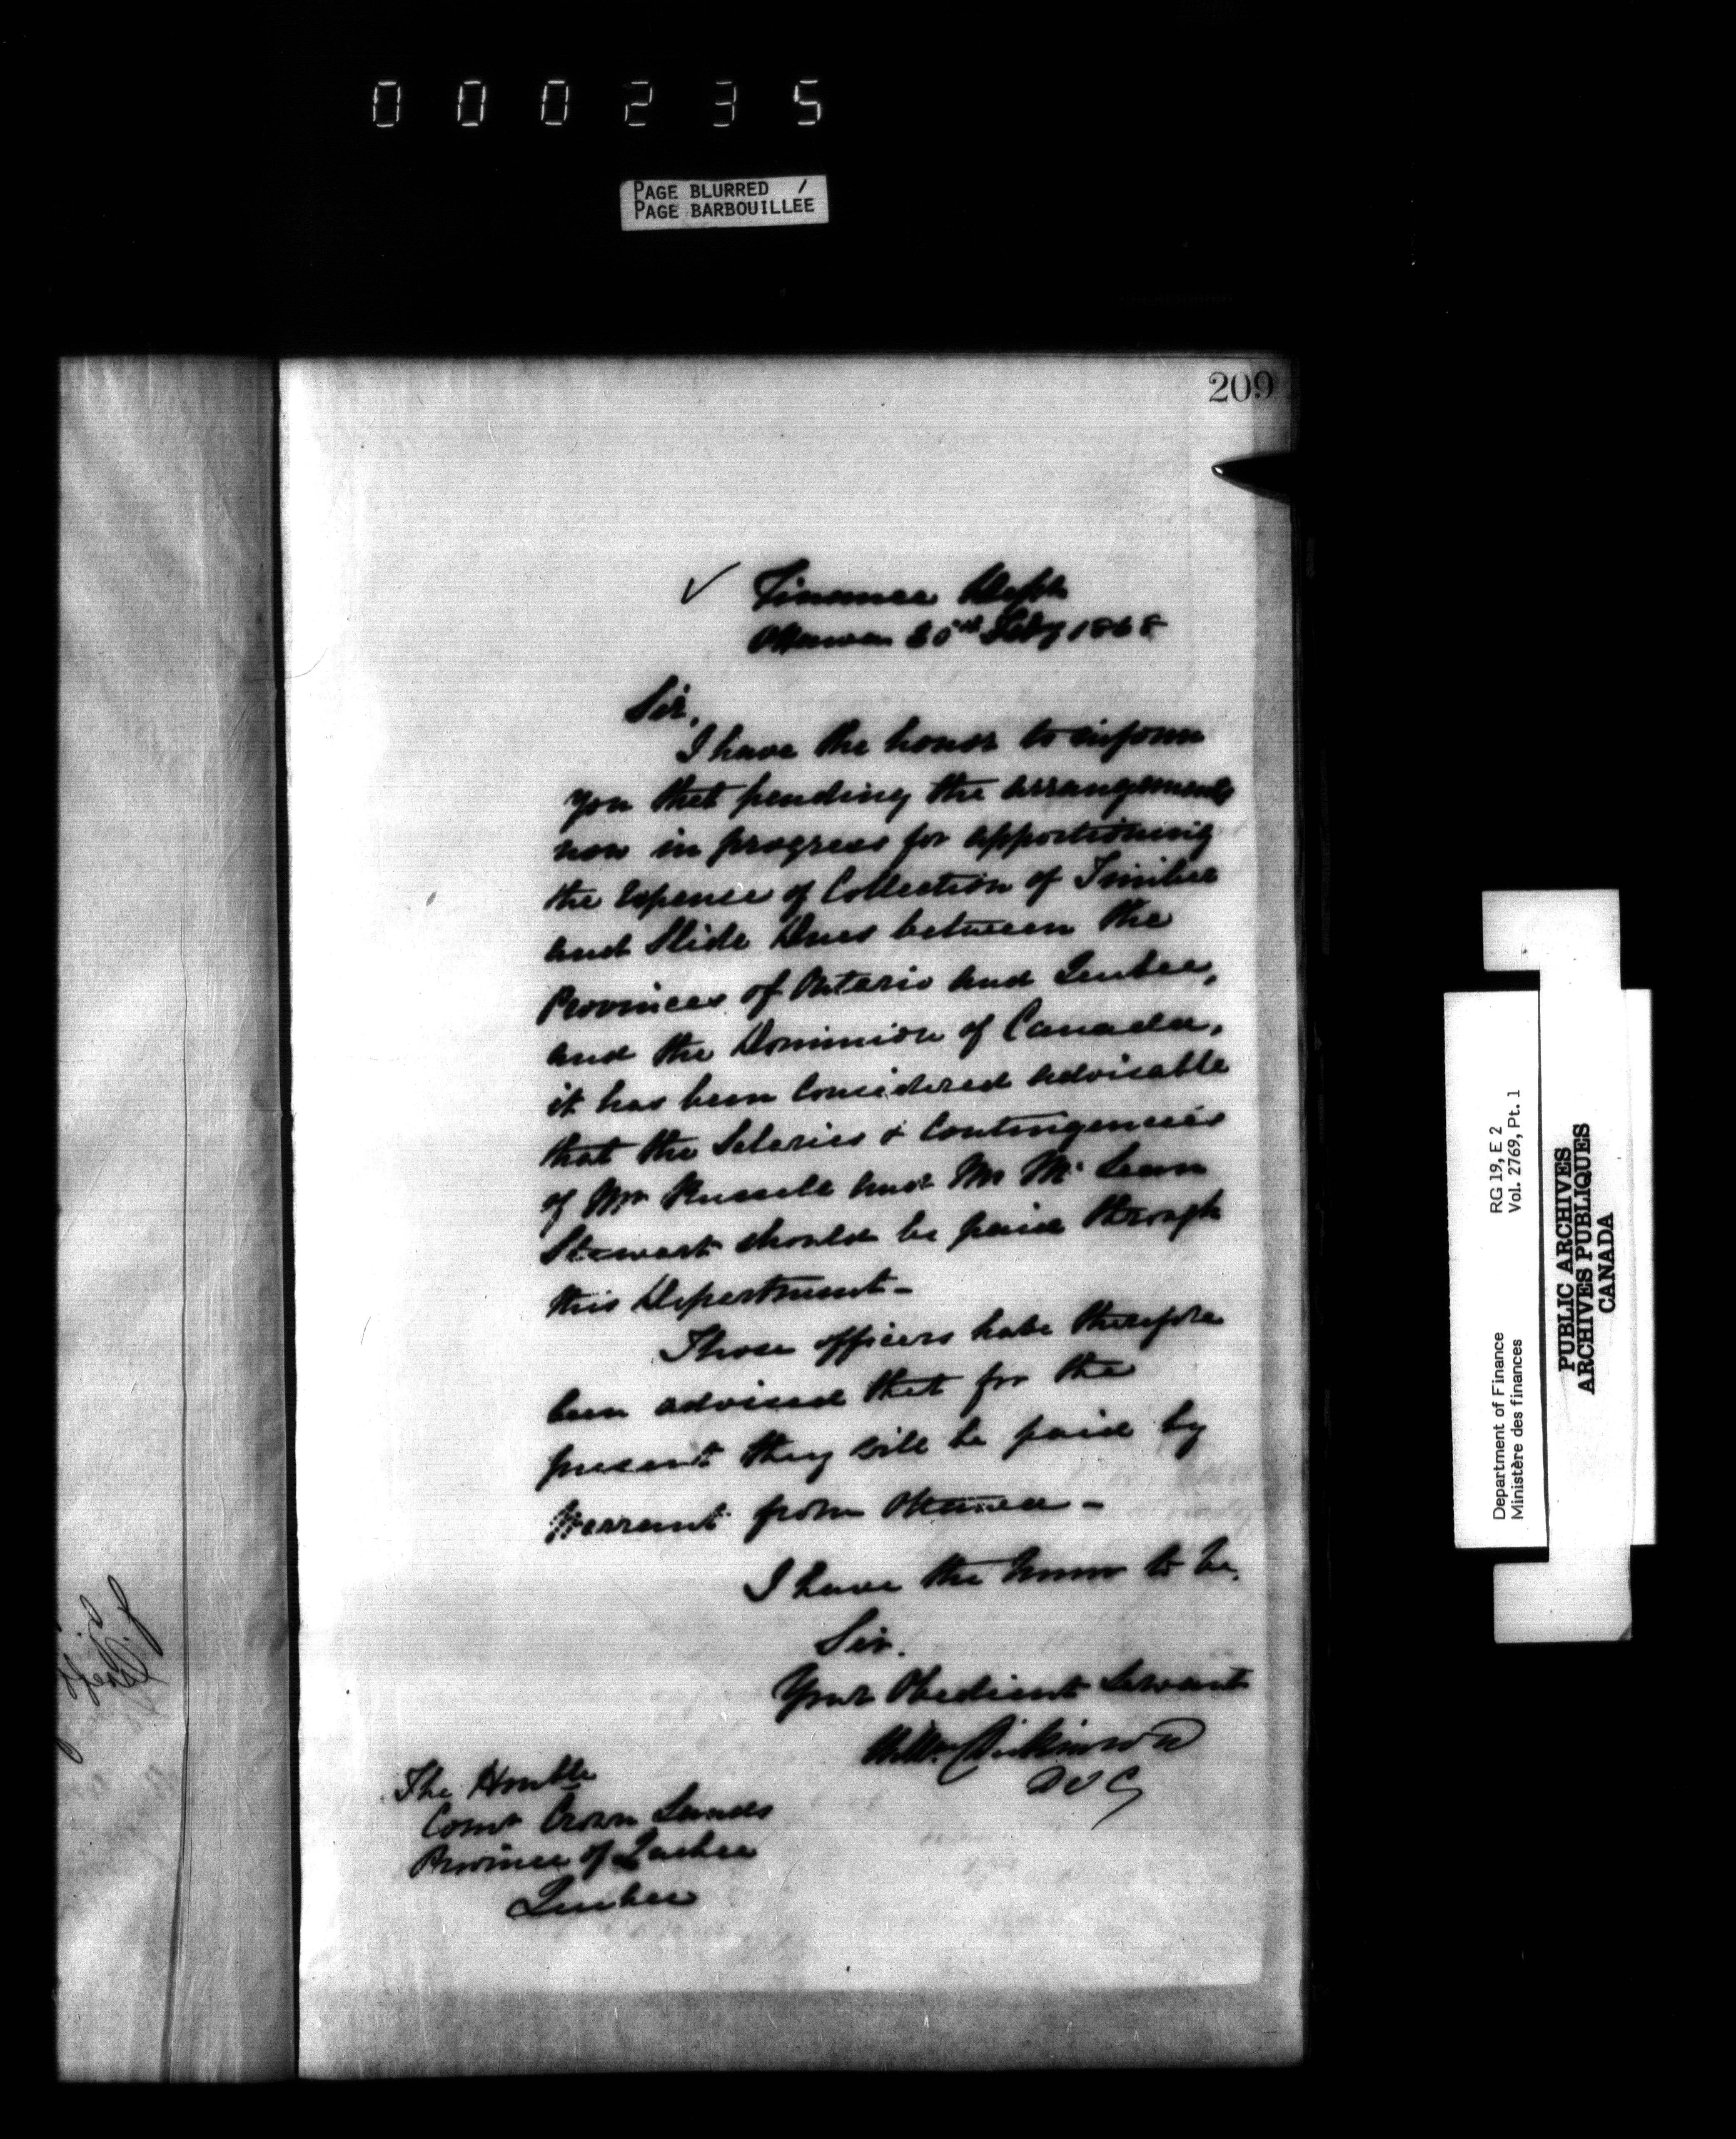 000235
PAGE BLURRED /
PAGE BARBOUILLEE
209
✓ Finance Dept
Ottawa 20th Feby 1868
Sir,
I have the honor to inform
you that pending the arrangements
now in progress for apportioning
the Expense of Collection of Timber
and Slide Dues between the
Provinces of Ontario and Quebec,
and the Dominion of Canada,
it has been Considered advisable
that the Salaries & Contingencies
of Mr Russell and Mr Mc Lean
Stewart should be paid through
this Department -
Those officers have therefore
been advised that for the
present they will be paid by
Warrant from Ottawa -
I have the honor to be,
Sir.
Your Obedient Servant
Willm Dickinson
The Honble
Comr Crown Lands
Province of Quebec
Quebec
Department of Finance RG 19, E 2
Ministère des finances Vol. 2769, Pt. 1
PUBLIC ARCHIVES
ARCHIVES PUBLIQUES
CANADA